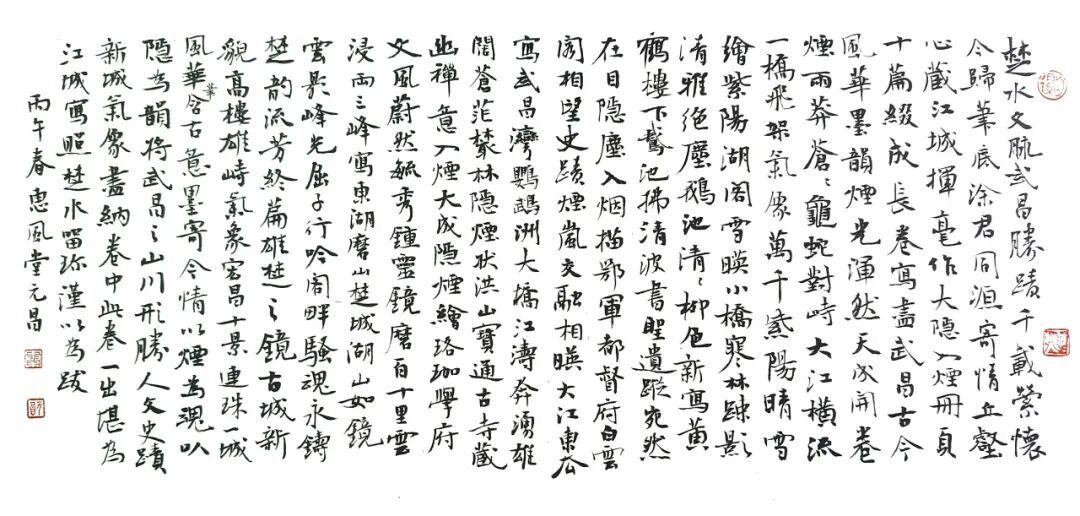 楚水文脉武昌勝蹟千載縈懷
今歸筆底涂君同源寄情丘壑
心藏江城揮毫作大隱入煙冊頁
十篇綴成長卷寫盡武昌古今
風華墨韻煙光渾然天成開卷
煙雨莽蒼〻龜蛇對峙大江橫流
一橋飛架氣象萬千紫陽晴雪
繪紫陽湖閣雪暎小橋寒林疎影
清雅絕塵鵝池清〻柳色新寫黃
鶴樓下鵞池拂清波書聖遺蹤宛然
在目隱塵入烟描鄂軍都督府白雲
閣相望史蹟煙嵐交融相暎大江東去
寫武昌灣鸚鵡洲大橋江濤奔湧雄
闊蒼茫叢林隱煙狀洪山寶通古寺藏
幽禪意入煙大成隱煙繪珞珈學府
文風蔚然毓秀鍾靈鏡磨百十里雲
浸兩三峰寫東湖磨山楚城湖山如鏡
雲影峰光屈子行吟閣畔騷魂永鑄
楚韻流芳終篇雄楚之鏡古城新
貌高樓雄峙氣象宏昌十景連珠一城
風華筆含古意墨寄今情以煙為魂以
隱為韻將武昌之山川形勝人文史蹟
新城氣象盡納卷中此卷一出堪為
江城寫照楚水留珍謹以為跋
丙午春惠風堂元昌